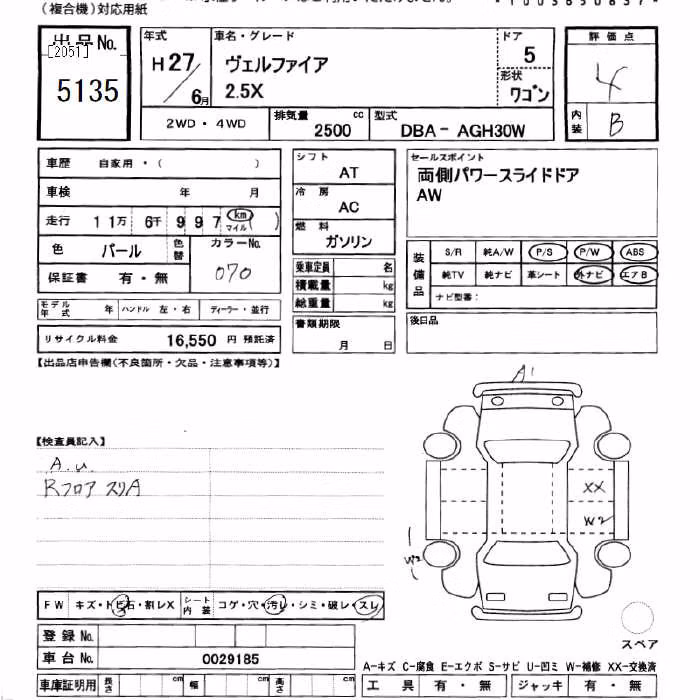 (複合機)対応用紙
出品No.
[2051]
5135
年式
H27/6月
車名・グレード
ヴェルファイア
2.5X
ドア
5
形状
ワゴン
評価点
4
内装
B
2WD・4WD
排気量
2500 cc
型式
DBA- AGH30W
車歴 自家用・( )
車検 年 月
走行 11万 6千 997 km マイル ( )
色 パール 色替
カラーNo.
070
保証書 有・無
モデル年式 年 ハンドル 左・右 ディーラー・並行
リサイクル料金 16,550 円 預託済
シフト
AT
冷房
AC
燃料
ガソリン
乗車定員 名
積載量 kg
総重量 kg
書類期限
月 日
セールスポイント
両側パワースライドドア
AW
装備品
S/R 純A/W P/S P/W ABS
純TV 純ナビ 革シート 外ナビ エアB
ナビ型番:
後日品
【出品店申告欄(不良箇所・欠品・注意事項等)】
【検査員記入】
A.u.
Rフロア スリA
A1
XX
W2
W2
スペア
FW キズ・トビ石・割レX シート内装 コゲ・穴・汚レ・シミ・破レ・スレ
登録No.
車台No. 0029185
車庫証明用 長さ cm 幅 cm 高さ cm
A-キズ C-腐食 E-エクボ S-サビ U-凹ミ W-補修 XX-交換済
工具 有・無 ジャッキ 有・無